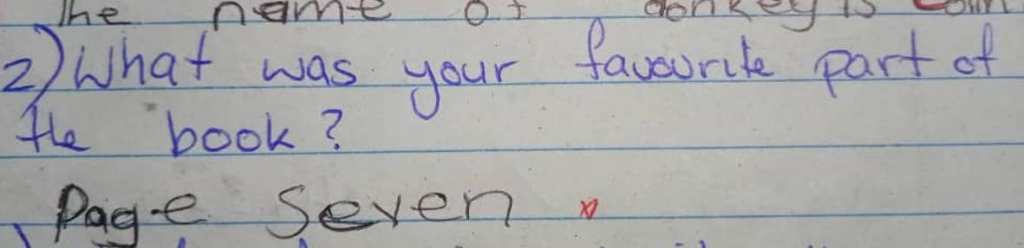 The name of donkey is
2) What was your favourite part of
the book?
Page Seven